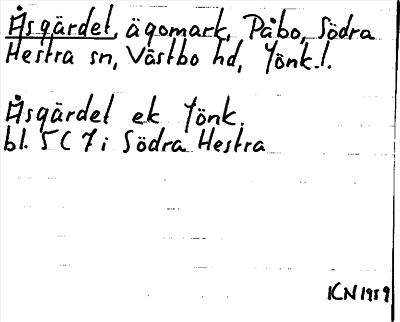 Åsgärdet, ägomark, Påbo, Södra
Hestra sn, Västbo hd, Jönk. l.
Åsgärdet ek Jönk.
bl. 5 C 7 i Södra Hestra
KN 1959